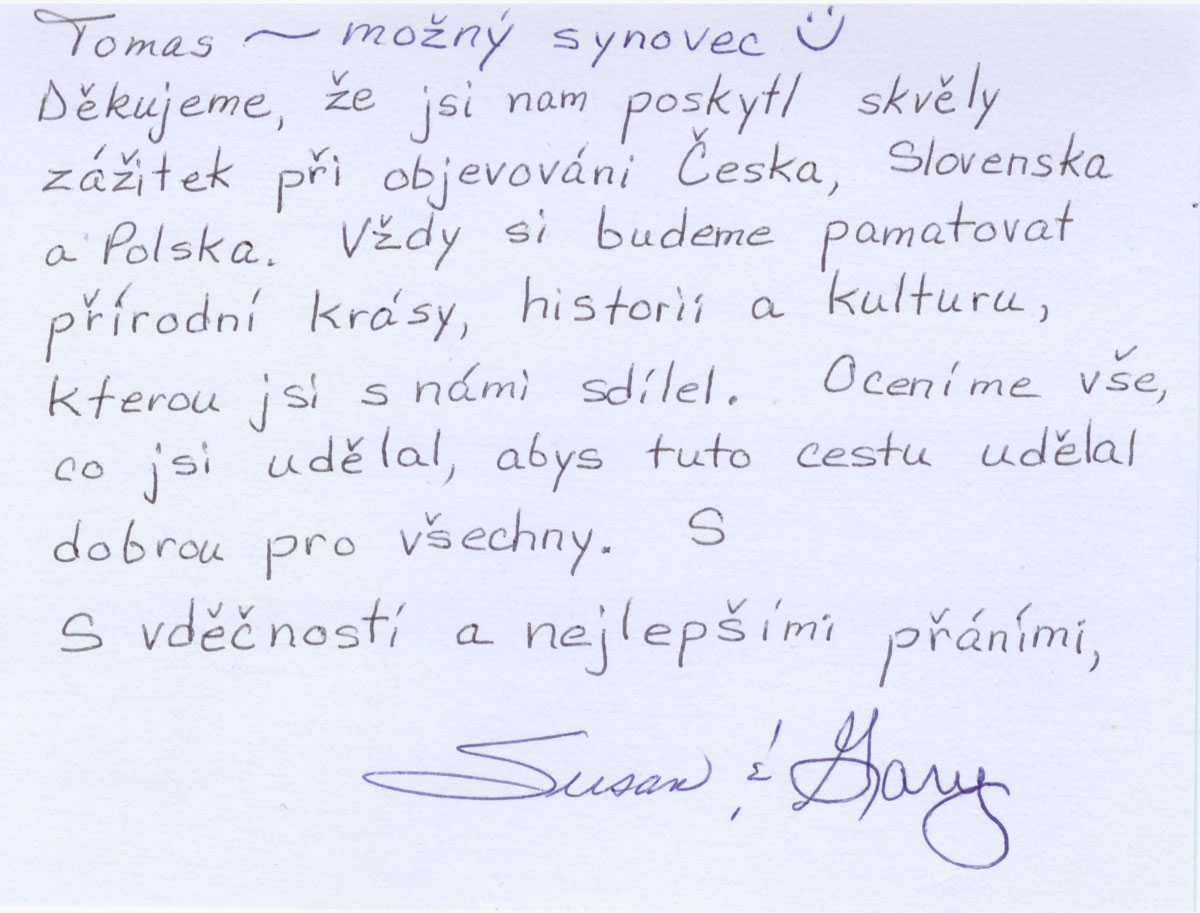 Tomas ~ možný synovec ☺
Děkujeme, že jsi nam poskytl skvěly
zážitek při objevováni Česka, Slovenska
a Polska. Vždy si budeme pamatovat
přírodní krásy, historii a kulturu,
kterou jsi s námi sdílel. Oceníme vše,
co jsi udělal, abys tuto cestu udělal
dobrou pro všechny. S
S vděčností a nejlepšími přáními,
Susan & Gary